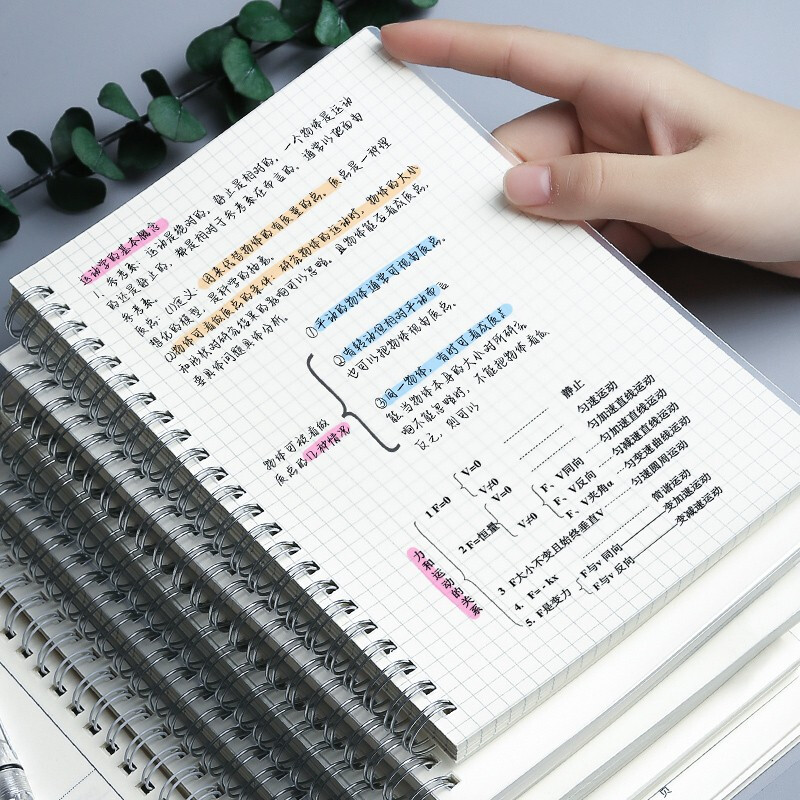 运动学的基本概念
1.参考系：运动是绝对的，静止是相对的。一个物体是运动
的还是静止的，都是相对于参考系在而言的，通常以地面为
参考系。
质点：(1)定义：用来代替物体的有质量的点。质点是一种理
想化的模型，是科学的抽象。
(2)物体可看做质点的条件：研究物体的运动时，物体的大小
和形状对研究结果的影响可以忽略。且物体能否看成质点，
要具体问题具体分析。
物体可被看做
质点的几种情况
①平动的物体通常可视为质点。
②有转动但相对平动而言
也可以把物体视为质点。
③同一物体，有时可看成质点
能当物体本身的大小对所研究
响不能忽略时，不能把物体看做
反之，则可以
力和运动的关系
1 F=0
V=0 静止
V≠0 匀速运动
2 F=恒量
V=0 匀加速直线运动
V≠0
F、V同向 匀加速直线运动
F、V反向 匀减速直线运动
F、V夹角α 匀变速曲线运动
3 F大小不变且始终垂直V 匀速圆周运动
4. F= - kx 简谐运动
5. F是变力
F与v 同向 变加速运动
F与v 反向 变减速运动
页